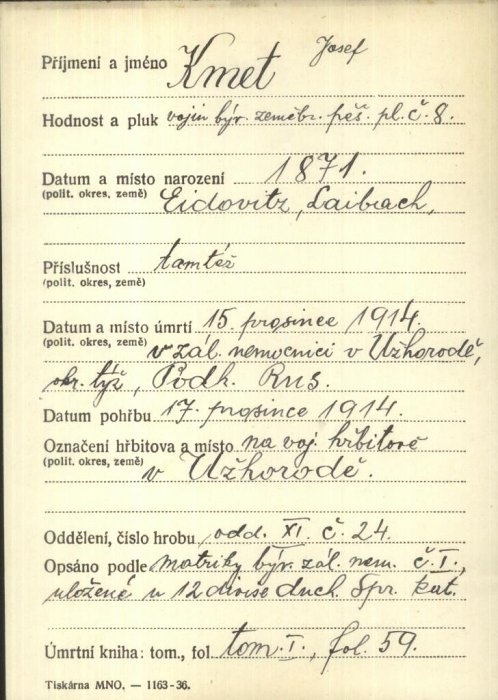 Příjmení a jméno Kmet Josef
Hodnost a pluk vojín býv. zeměbr. pěš. pl. č. 8.
Datum a místo narození 1871.
(polit. okres, země) Eidovitz, Laibach,
Příslušnost tamtéž
(polit. okres, země)
Datum a místo úmrtí 15. prosince 1914.
(polit. okres, země) v zál. nemocnici v Užhorodě,
okr. týž, Podk. Rus.
Datum pohřbu 17. prosince 1914.
Označení hřbitova a místo na voj. hřbitově
(polit. okres, země) v Užhorodě.
Oddělení, číslo hrobu odd. XI. č. 24.
Opsáno podle matriky býv. zál. nem. č. I.,
uložené u 12 divise duch. spr. kat.
Úmrtní kniha: tom., fol. tom. I., fol. 59.
Tiskárna MNO. — 1163-36.